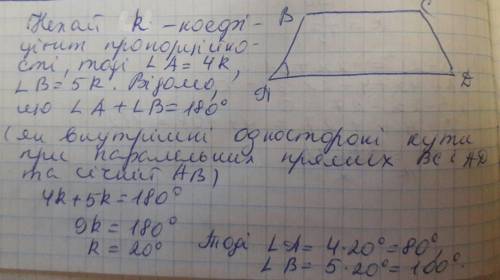 Нехай k – коефі-
цієнт пропорційно-
сті, тоді ∠A = 4k,
∠B = 5k. Відомо,
що ∠A + ∠B = 180°
(як внутрішні односторонні кути
при паралельних прямих BC і AD
та січній AB)
4k + 5k = 180°
9k = 180°
k = 20°
Тоді ∠A = 4·20° = 80°,
∠B = 5·20° = 100°.
B
C
A
D